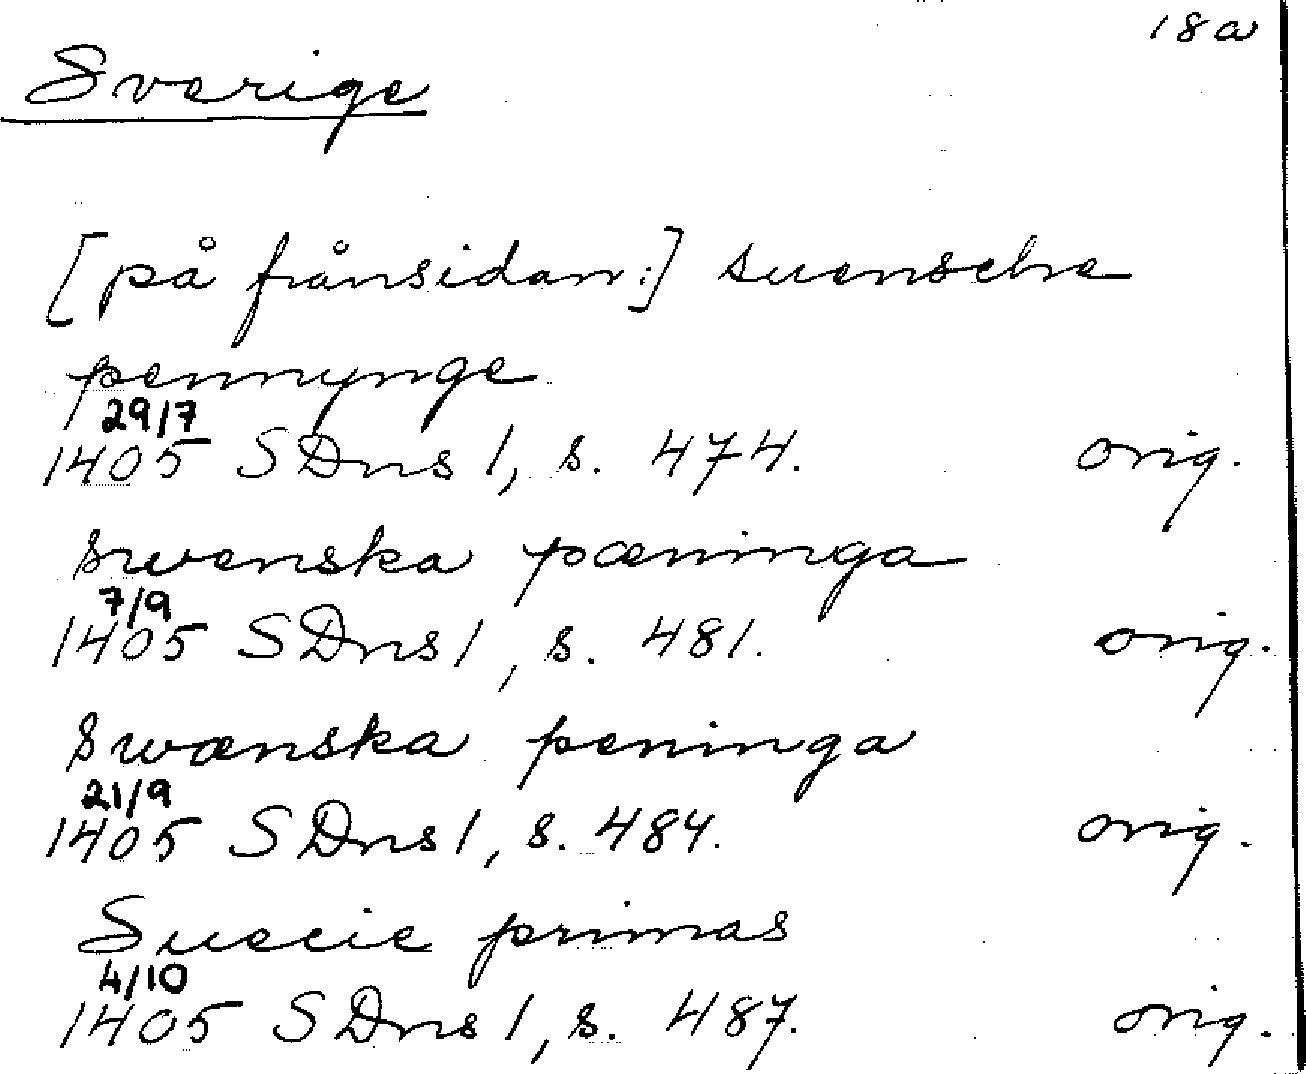 18a
Sverige
[på frånsidan:] suensche
pennynge
29/7
1405 SDns 1, s. 474. orig.
swenska pæninga
7/9
1405 SDns 1, s. 481. orig.
swænska peninga
21/9
1405 SDns 1, s. 484. orig.
Suecie primas
4/10
1405 SDns 1, s. 487. orig.